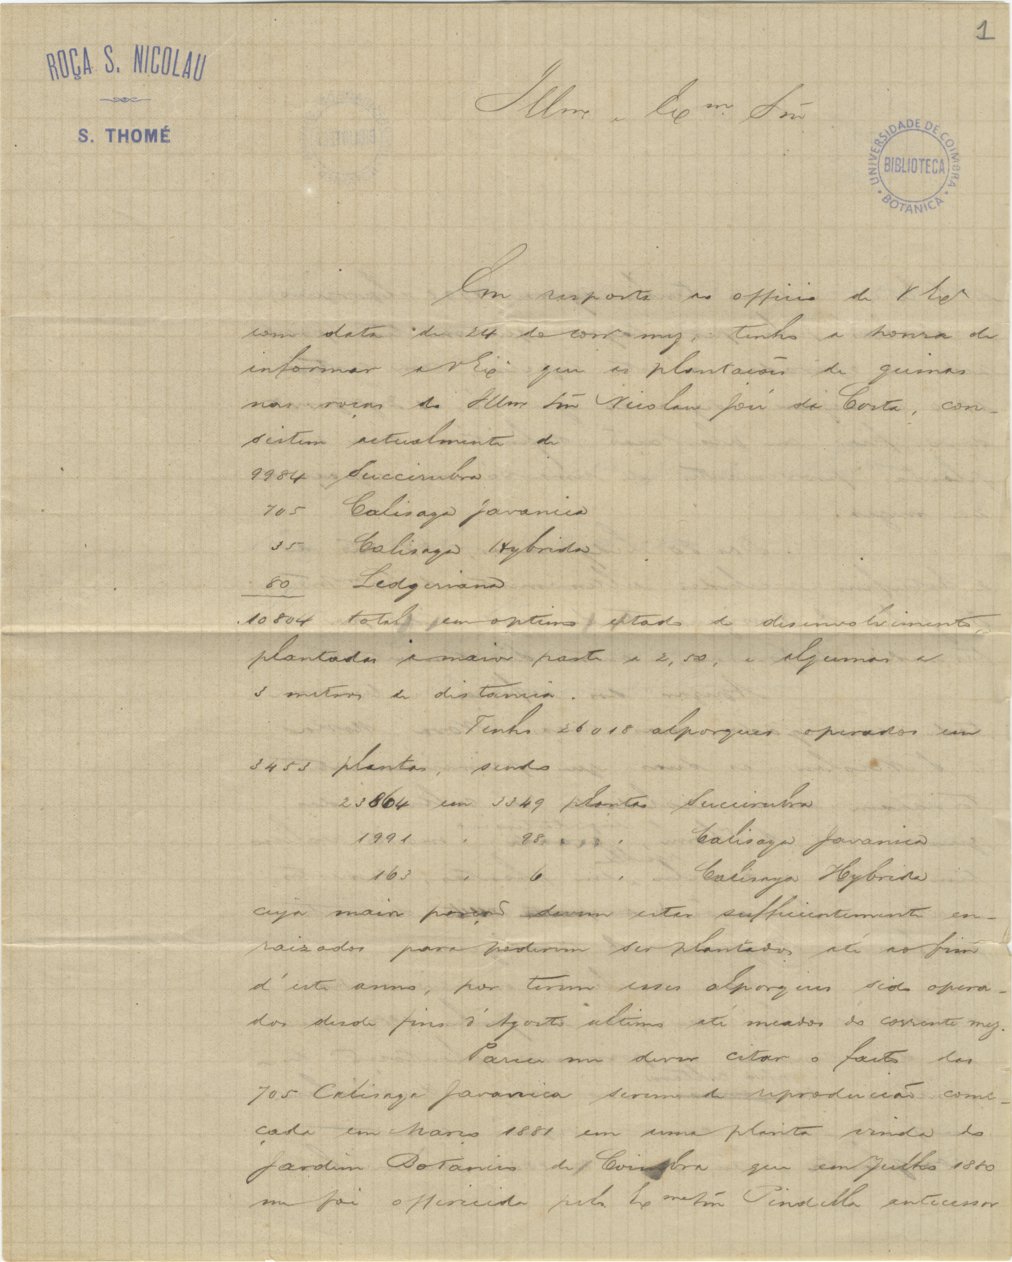 1
ROÇA S. NICOLAU
S. THOMÉ
Illmo e Exmo. Snr
UNIVERSIDADE DE COIMBRA
BIBLIOTECA
BOTANICA
Em resposta ao officio de V Exª
com data de 24 do corr mez, tenho a honra de
informar a V Exª que as plantacões de quinas
nas roças do Illmo Snr Nicolau José da Costa, con-
sistem actualmente de
9984 Succirubra
705 Calisaya Javanica
35 Calisaya Hybrida
80 Ledgeriana
10804 total em optimo estado de desenvolvimento,
plantadas a maior parte a 2,50, e algumas a
3 metros de distancia.
Tenho 26018 alporques operados em
3453 plantas, sendo
23864 em 3349 plantas Succirubra
1991 " 98 " Calisaya Javanica
163 " 6 " Calisaya Hybrida
cuja maior porção devem estar sufficientemente en-
raizados para poderem ser plantados até ao fim
d'este anno, por terem esses alporques sido opera-
dos desde fins d'Agosto ultimo até meados do corrente mez.
Parece me dever citar o facto das
705 Calisaya Javanica serem de reproducção come-
çada em Março 1881 em uma planta vinda do
Jardim Botanico de Coimbra que em Julho 1880
me foi offerecida pelo Exmo Snr Pindella antecessor